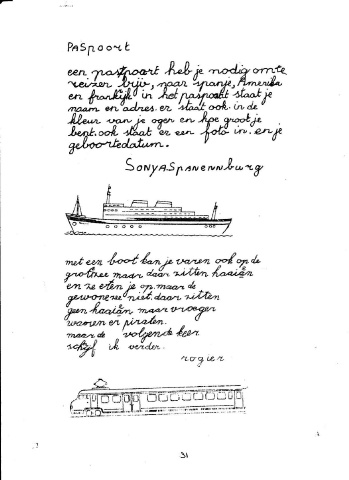 PASpoort
een pastpoort heb je nodig om te
reizen bijv, naar spanje, Amerika
en frankijk in het paspoort staat je
naam en adres. er staat ook in de
kleur van je ogen en hoe groot je
bent. ook staat er een foto in. en je
geboortedatum.
SONYASpanennburg
met een boot kan je varen ook op de
grotezee maar daar zitten haaiän
en ze eten je op. maar de
gewonezee niet. daar zitten
geen haaiän maar vroeger
waren er piraten.
maar de volgende keer
schijf ik verder.
rogier
31